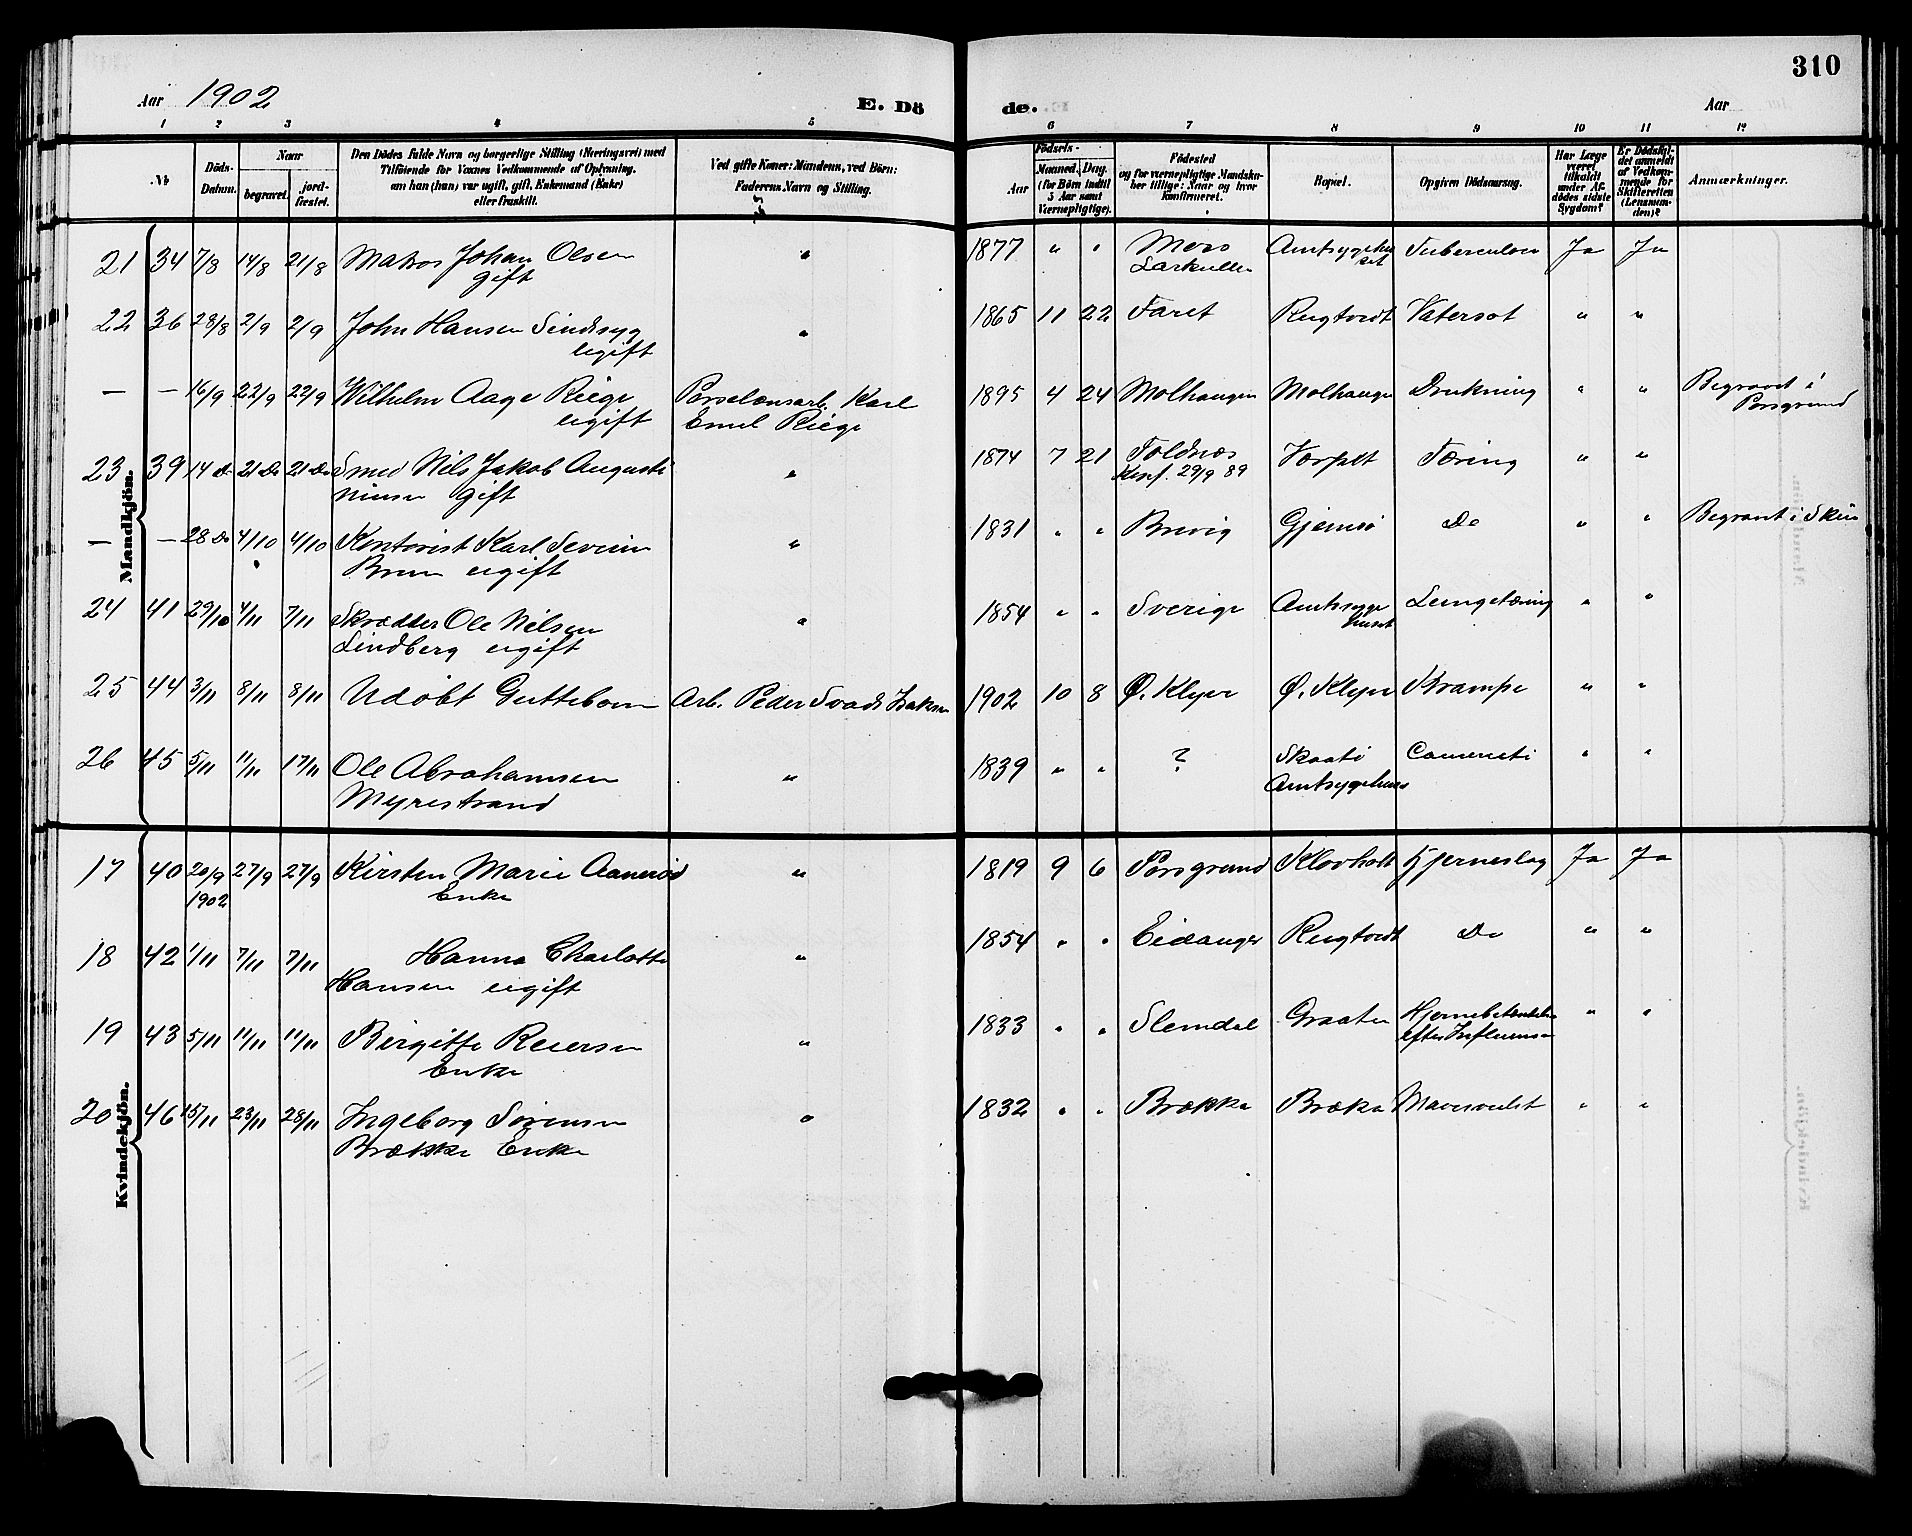 310
Aar 1902 E. Dö de. Aar
1 2 3 4 5 6 7 8 9 10 11 12
Nr. Döds-Datum. Naar begravet. jord-fæstet. Den Dödes fulde Navn og borgerlige Stilling (Næringsvei) med Tilföiende for Voxnes Vedkommende af Oplysning, om han (hun) var ugift, gift, Enkemand (Enke) eller fraskilt. Ved gifte Koner: Mandens, ved Börn: Faderens Navn og Stilling. Födsels- Aar Maaned. Dag. (for Börn indtil 5 Aar samt Værnepligtige). Födested og for værnepligtige Mandskaber tillige: Naar og hvor konfirmeret. Bopæl. Opgiven Dödsaarsag. Har Læge været tilkaldt under Afdödes sidste Sygdom? Er Dödsfaldet anmeldt af Vedkommende for Skifteretten (Lensmanden)? Anmærkninger.
Mandkjön.
21 34 7/8 14/8 21/8 Matros Johan Olsen " 1877 " " Moss Amtsygehu Tuberculose Ja Ja
gift Larkullen set
22 36 28/8 2/9 2/9 John Hansen Sindssyg " 1865 11 22 Faret Rugtvedt Vatersot " "
ugift
— — 16/9 22/9 22/9 Wilhelm Aage Riege Porselænsarb. Karl 1895 4 24 Molhaugen Molhaugen Drukning " " Begravet i
ugift Emil Riege Porsgrund
23 39 14 Do 21 Do 21 Do Smed Nils Jakob Augusti " 1874 7 21 Foldnæs Tæring " "
nusen gift Konf. 29/9 89
— — 28 Do 4/10 4/10 Kontorist Karl Severin " 1831 " " Brevig Gjemsø Do " " Begravet i Skien
Bruun ugift
24 41 29/10 4/11 7/11 Skrædder Ole Nilsen " 1854 " " Sverige Amtssyge Lungetæring " "
Lindberg ugift huset
25 44 3/11 8/11 8/11 Udøbt Guttebarn Arb. Peder Isaksen 1902 10 8 Ø. Klyve Ø. Klyve Krampe " "
26 45 5/11 11/11 17/11 Ole Abrahamsen " 1839 " " ? Skaatø " "
Myrestrand Amtsygehuset
Kvindekjön.
17 40 20/9 27/9 27/9 Kirsten Marie Aanerød " 1819 9 6 Porsgrund Klovholt Hjerneslag Ja Ja
1902 Enke
18 42 1/11 7/11 7/11 Hanna Charlotte " 1854 " " Eidanger Rugtvedt Do " "
Hansen ugift
19 43 5/11 11/11 11/11 Birgitte Reiersen " 1833 " " Slemdal Graaten Hjernebetændelse " "
Enke efter Influensa
20 46 15/11 23/11 28/11 Ingeborg Sørensen " 1832 " " Brække Brække Mavesvulst " "
Brække Enke